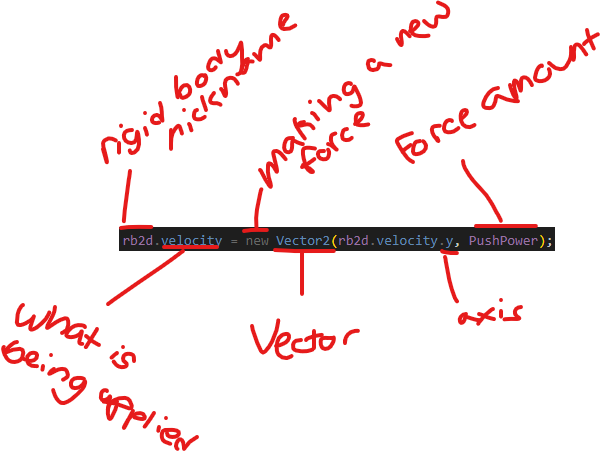 rigid body
nickname
making a new
force
Force amount
rb2d.velocity = new Vector2(rb2d.velocity.y, PushPower);
what is
being applier
Vector
axis